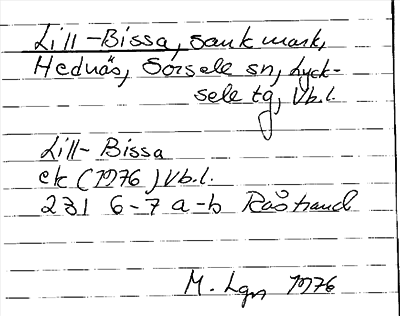 Lill-Bissa, sank mark,
Hednäs, Sorsele sn, Lyck-
sele tg, Vb.l.
Lill-Bissa
ek (1976) Vb.l.
231 6-7 a-b Råstrand
M. Lgn 1976